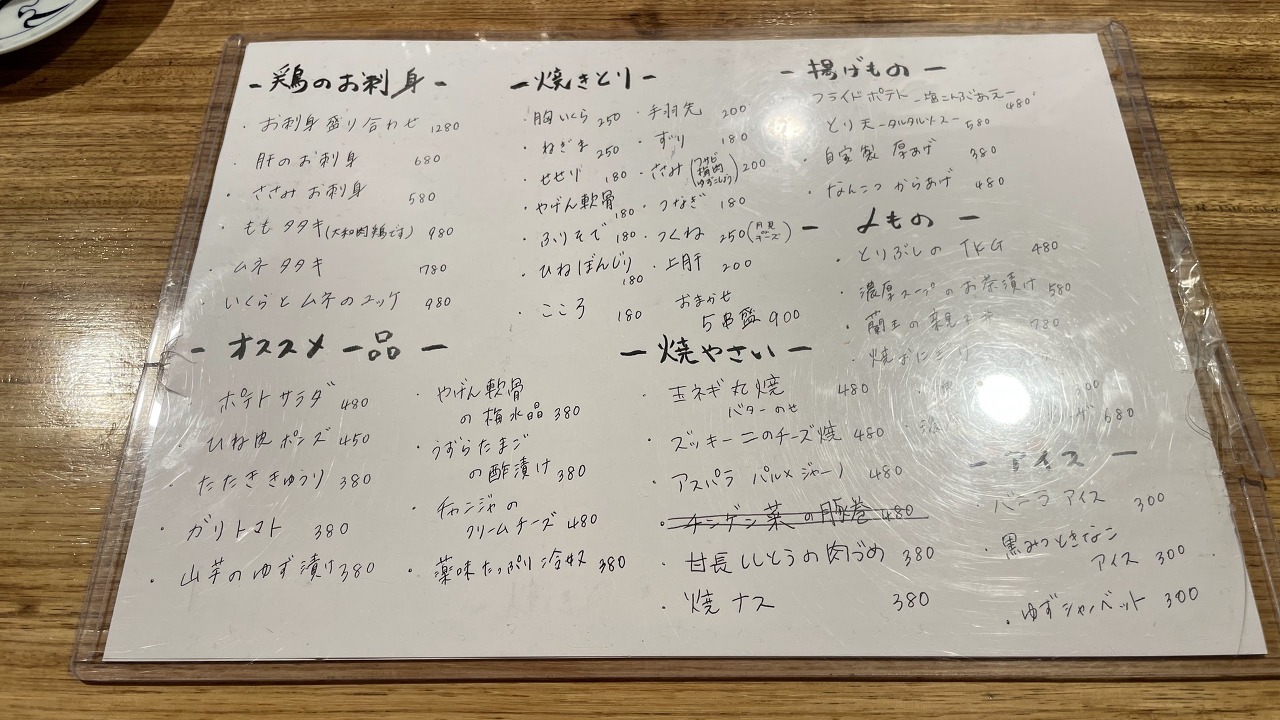 - 鶏のお刺身 -
・お刺身盛り合わせ 1280
・肝のお刺身 680
・ささみお刺身 580
・ももタタキ(大和肉鶏です) 980
・ムネタタキ 780
・いくらとムネのユッケ 980
- 焼きとり -
・胸いくら 250
・ねぎま 250
・せせり 180
・やげん軟骨 180
・ふりそで 180
・ひねぼんじり 180
・こころ 180
・手羽先 200
・ずり 180
・ささみ(ワサビ 梅肉 ゆずこしょう) 200
・つなぎ 180
・つくね 250(月見 or チーズ)
・上肝 200
おまかせ
5串盛 900
- 揚げもの -
フライドポテト -塩こんぶあえ- 480
・とり天 -タルタルソース- 580
・自家製 厚あげ 380
・なんこつからあげ 480
- 〆もの -
・とりぶしの TKG 480
・濃厚スープのお茶漬け 580
・蘭王の親子丼 780
・焼おにぎり
300
680
- オススメ一品 -
ポテトサラダ 480
・ひね皮ポンズ 450
・たたききゅうり 380
・ガリトマト 380
・山芋のゆず漬け 380
・やげん軟骨
の梅水晶 380
・うずらたまご
の酢漬け 380
・チャンジャの
クリームチーズ 480
・薬味たっぷり冷奴 380
- 焼やさい -
・玉ネギ丸焼 480
バターのせ
・ズッキーニのチーズ焼 480
・アスパラ パルメジャーノ 480
・チンゲン菜の豚巻 480
・甘長ししとうの肉づめ 380
・焼ナス 380
- アイス -
・バニラアイス 300
・黒みつときなこ
アイス 300
・ゆずシャーベット 300